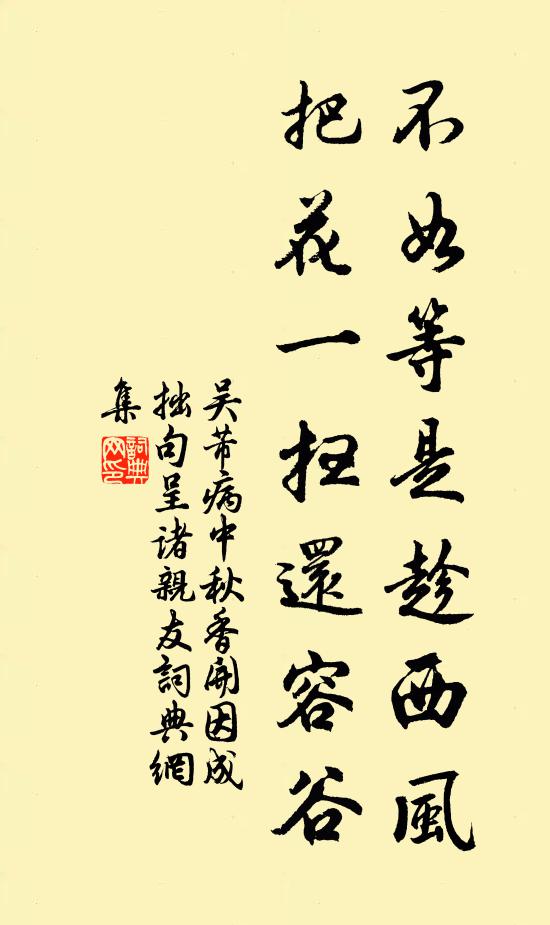 不如等是趁西風
把花一扫還容谷
吴芾病中秋香開因成
拙句呈诸親友詞典網
集
詞典网印